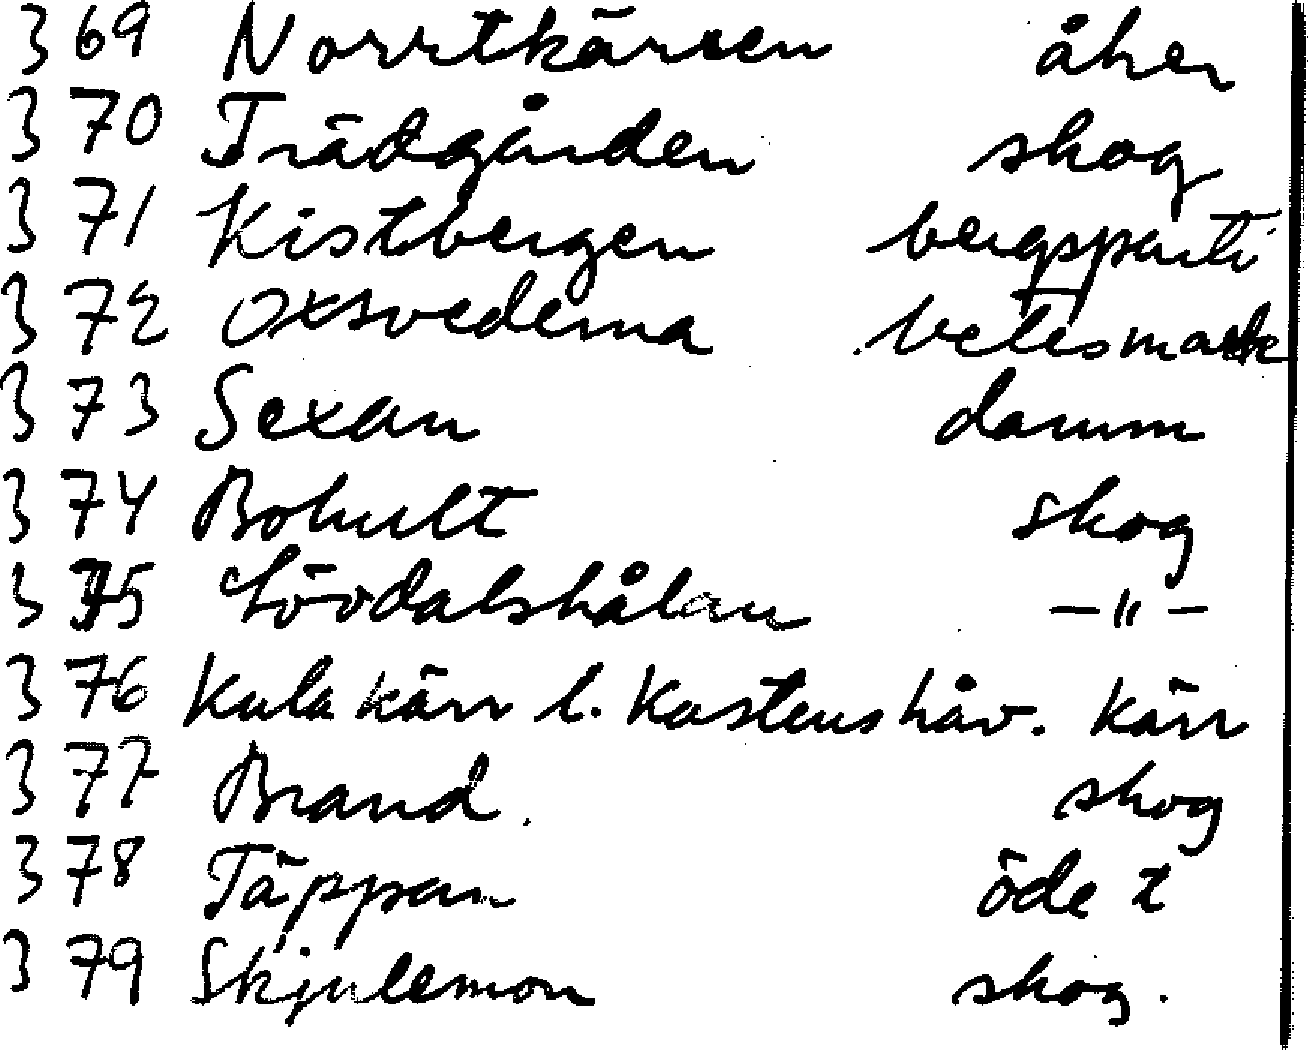 369 Norrtkärren åker
370 Trädgården skog
371 Kistbergen bergsparti
372 Oxsvederna betesmark
373 Sexan damm
374 Bohult skog
375 Lövdalshålan –"–
376 Kula kärr l. Kastenshåv. kärr
377 Brand. skog
378 Täppan öde t
379 Skjulemon skog.